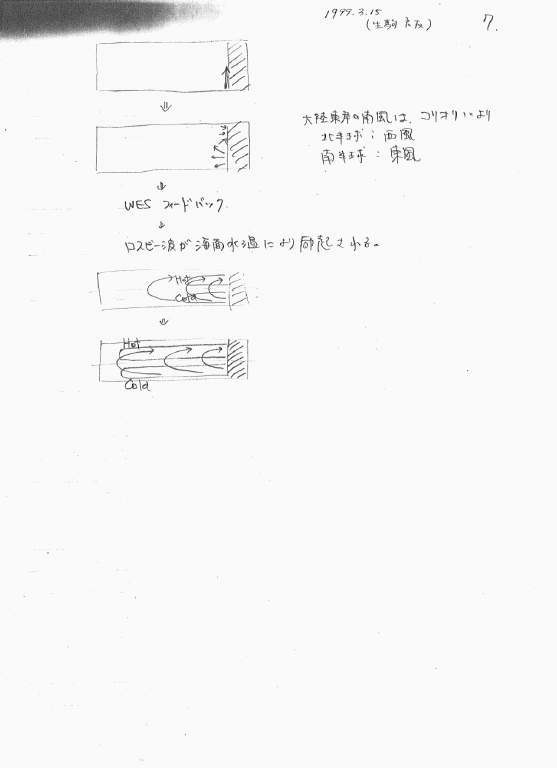 1999.3.15
(生駒 京阪)
7.
大陸東岸の南風は、コリオリにより
北半球：西風
南半球：東風
WES フィードバック
ロスビー波が海面水温により励起される。
Hot
Cold
Hot
Cold